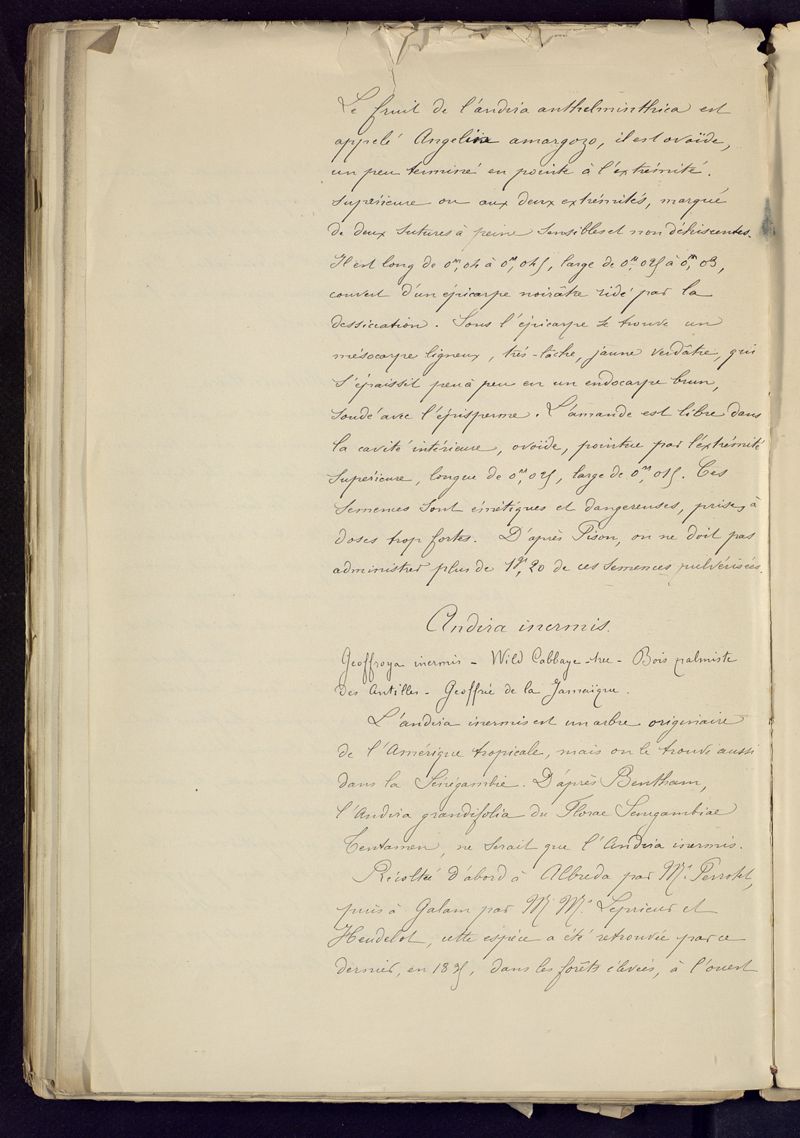 Le fruit de l'andira anthelminthica est
appelé Angelin amargozo, il est ovoïde,
un peu terminé en pointe à l'extrémité.
Supérieure ou aux deux extrémités, marqué
de deux sutures à peine sensibles et non déhiscentes.
Il est long de 0m,04 à 0m,045, large de 0m,025 à 0m,03,
couvert d'un épicarpe noirâtre ridé par la
dessiccation. Sous l'épicarpe se trouve un
mésocarpe ligneux, très-lâche, jaune verdâtre, qui
s'épaissit peu à peu en un endocarpe brun,
soudé avec l'épisperme. L'amande est libre dans
la cavité intérieure, ovoïde, pointue par l'extrémité
Supérieure, longue de 0m,025, large de 0m,015. Ces
semences sont émétiques et dangereuses, prises à
doses trop fortes. D'après Pison, on ne doit pas
administrer plus de 1gr,20 de ces semences pulvérisées.
Andira inermis.
Geoffroya inermis - Wild Cabbage-tree - Bois palmiste
des Antilles - Geoffrié de la Jamaïque.
L'andira inermis est un arbre originaire
de l'Amérique tropicale, mais on le trouve aussi
dans la Sénégambie. D'après Bentham,
l'Andira grandifolia du Florae Senegambiae
Tentamen, ne serait que l'Andira inermis.
Récolté d'abord à Albreda par Mr. Perrotet,
puis à Galam par M Mrs Leprieur et
Heudelot, cette espèce a été retrouvée par ce
dernier, en 1835, dans les forêts élevées, à l'ouest